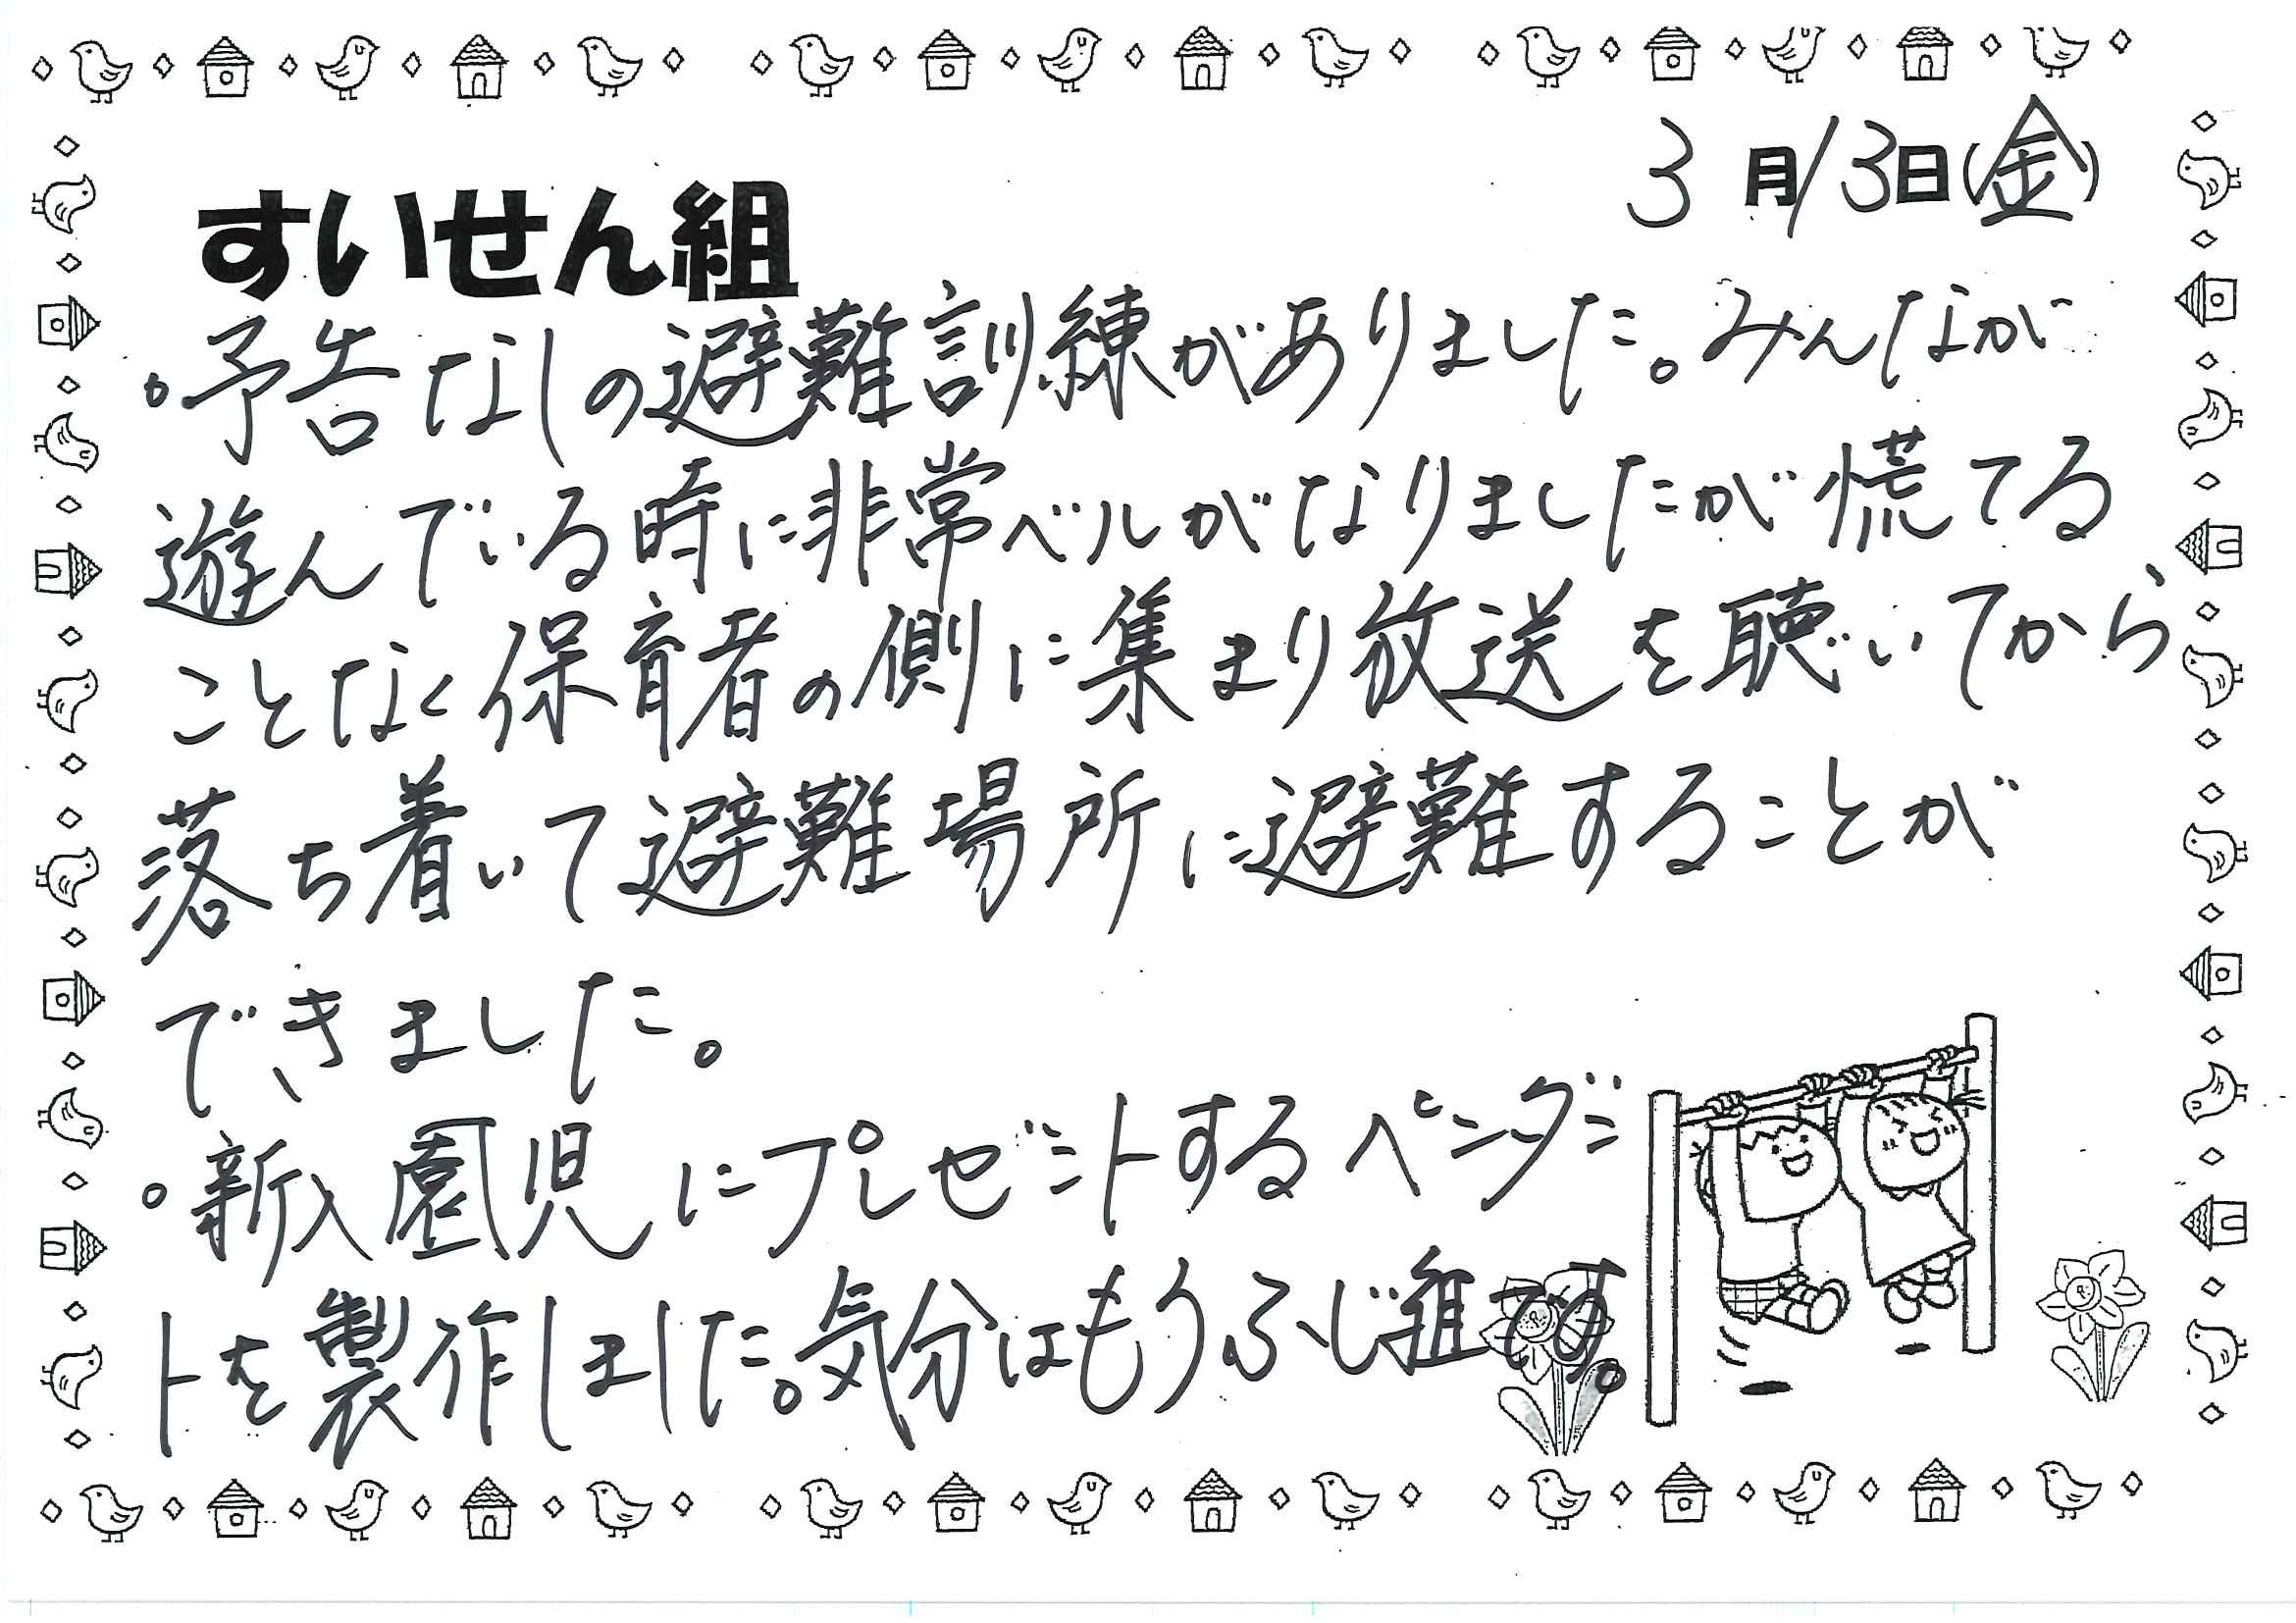 3月13日(金)
すいせん組
。予告なしの避難訓練がありました。みんなが
遊んでいる時に非常ベルがなりましたが慌てる
ことなく保育者の側に集まり放送を聴いてから
落ち着いて避難場所に避難することが
できました。
。新入園児にプレゼントするペンダン
トを製作しました。気分はもうふじ組です。